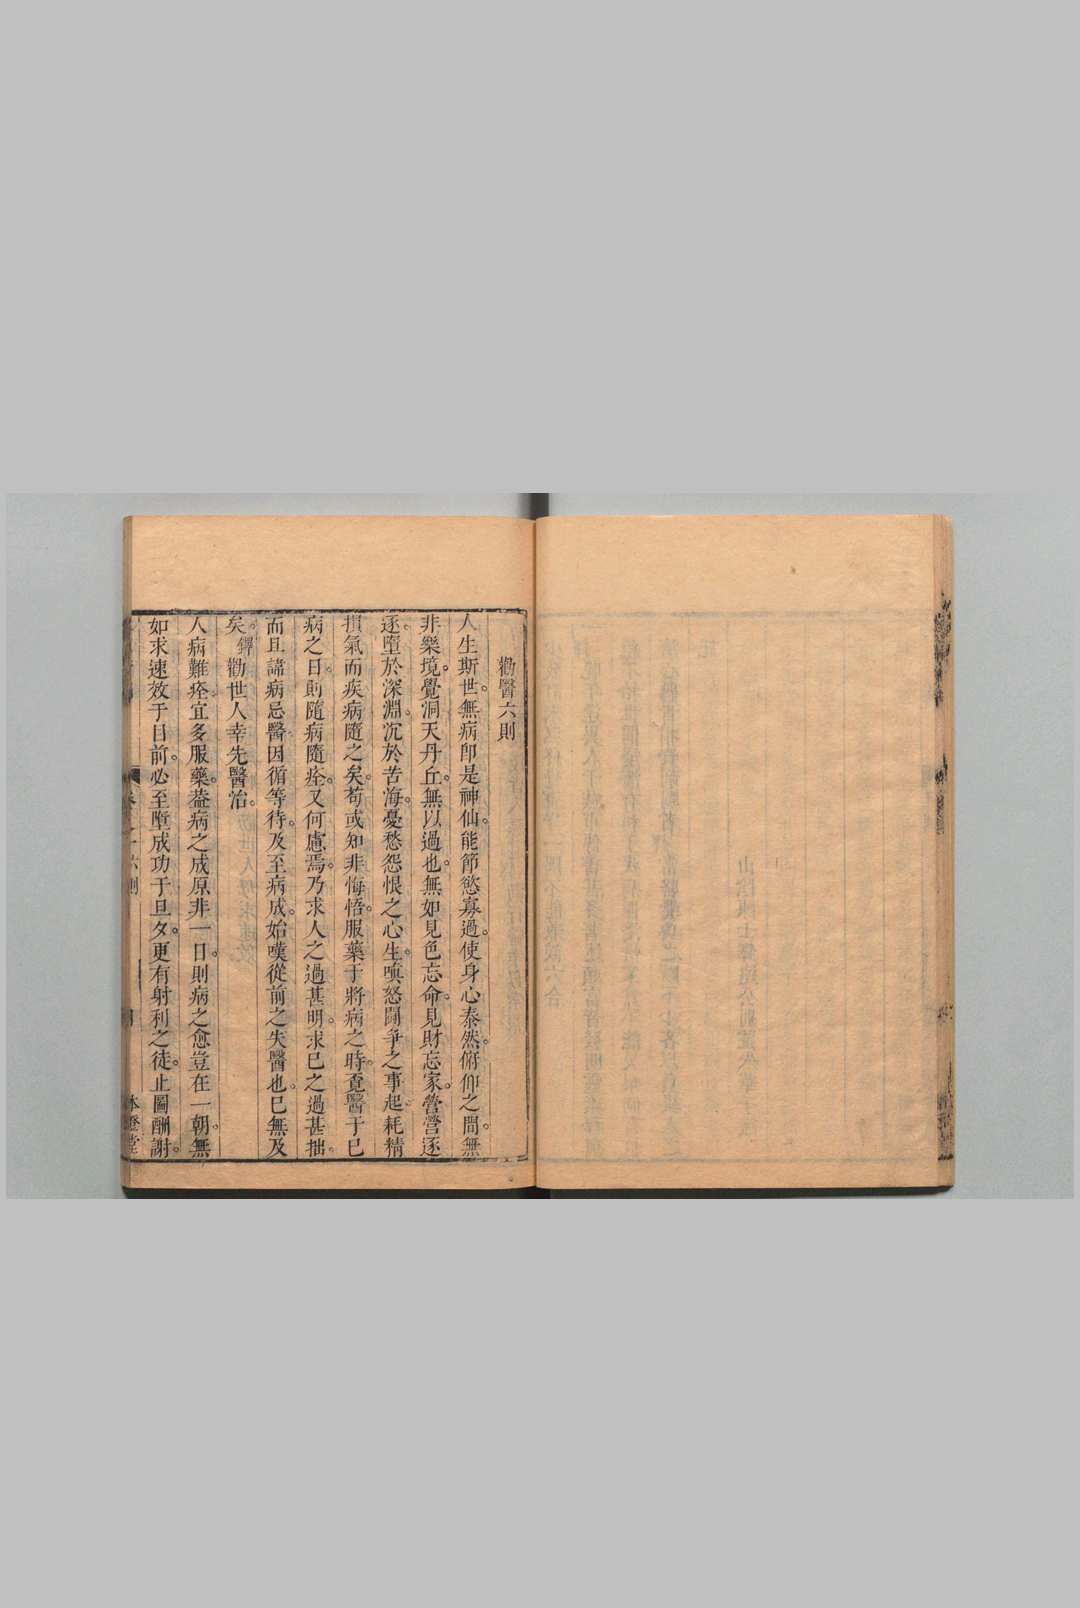 勸醫六則
人生斯世。無病卽是神仙。能節慾寡過。使身心泰然。俯仰之間。無
非樂境。覺洞天丹丘。無以過也。無如見色忘命。見財忘家。營營逐
逐。墮於深淵。沉於苦海。憂愁怨恨之心生。嗔怒鬪爭之事起。耗精
損氣。而疾病隨之矣。苟或知非悔悟。服藥于將病之時。覔醫于已
病之日。則隨病隨痊。又何慮焉。乃求人之過甚明。求已之過甚拙。
而且諱病忌醫。因循等待。及至病成。始嘆從前之失醫也。已無及
矣。鐸勸世人。幸先醫治。
人病難痊。宜多服藥。葢病之成。原非一日。則病之愈。豈在一朝。無
如求速效于目前。必至墮成功于旦夕。更有射利之徒。止圖酬謝。
六則
本澄堂